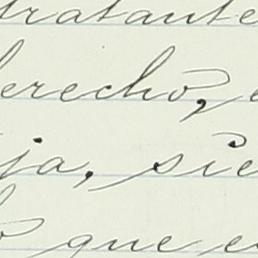 tratante
derecho,
ja, sie
que e